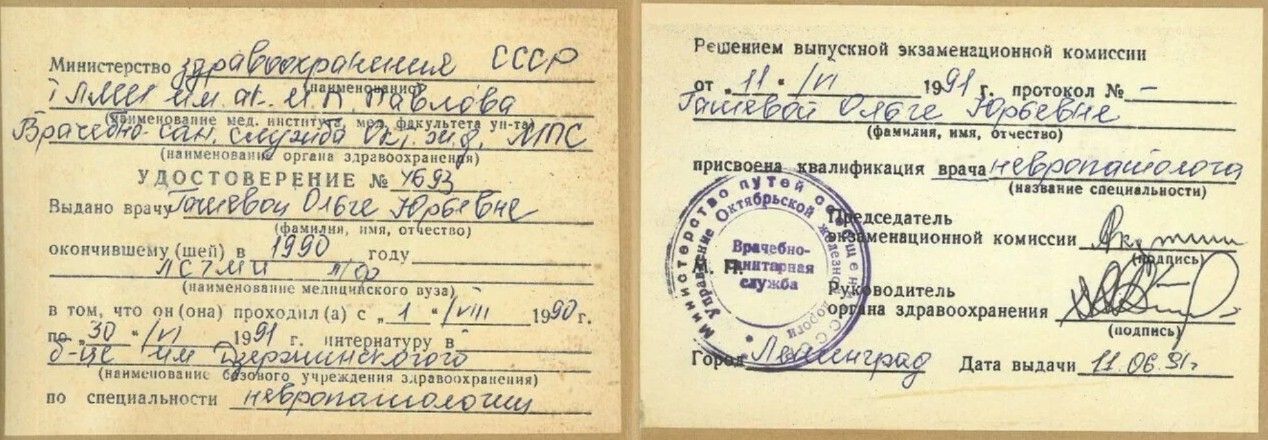 Министерство здравоохранения СССР
(наименование)
I ЛМИ им. ак. И.П. Павлова
(наименование мед. института, мед. факультета ун-та)
Врачебно-сан. служба Окт. ж.д. МПС
(наименование органа здравоохранения)
УДОСТОВЕРЕНИЕ № 4693
Выдано врачу Гашевой Ольге Юрьевне
(фамилия, имя, отчество)
окончившему (шей) в 1990 году
ЛСГМИ
(наименование медицинского вуза)
в том, что он (она) проходил (а) с „ 1 “ VIII 1990 г.
по „ 30 “ VI 1991 г. интернатуру в
б-це им Дзержинского
(наименование базового учреждения здравоохранения)
по специальности невропатологии
Решением выпускной экзаменационной комиссии
от „ 11 “ VI 1991 г. протокол № –
Гашевой Ольге Юрьевне
(фамилия, имя, отчество)
присвоена квалификация врача невропатолога
(название специальности)
Председатель
экзаменационной комиссии
(подпись)
М. П.
Руководитель
органа здравоохранения
(подпись)
Город Ленинград Дата выдачи 11.06.91г
Министерство путей сообщения СССР
Управление Октябрьской железной дороги
Врачебно-
санитарная
служба